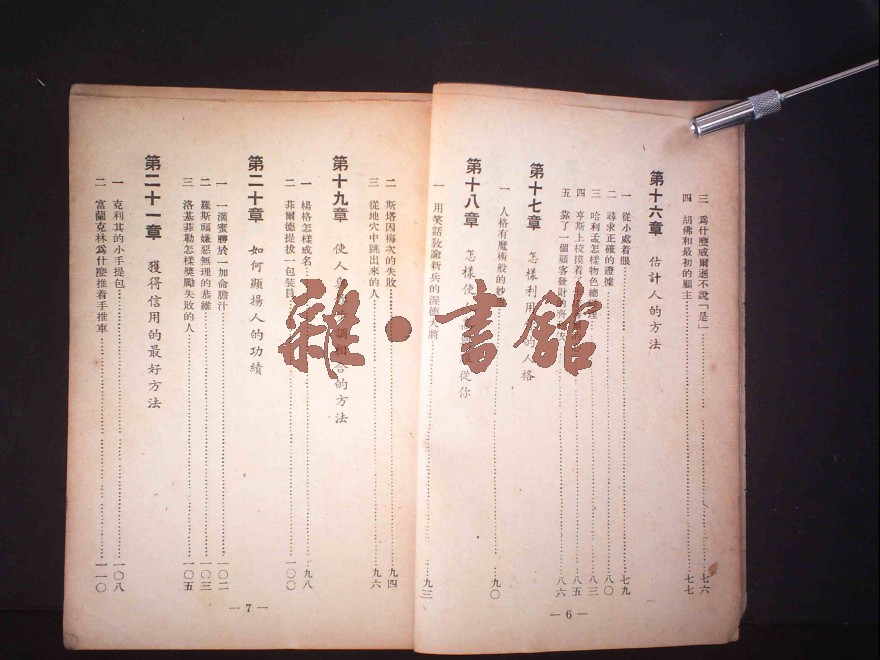 三 為什麼威爾遜不說「是」 七六
四 胡佛和最初的顧主 七七
第十六章 估計人的方法
一 從小處着眼 七九
二 尋求正確的證據 八〇
三 哈利孟怎樣物色總 八三
四 亨斯上校摸着 八五
五 靠了一個顧客發財的 八六
第十七章 怎樣利用 的人格
一 人格有魔術般的妙 九〇
第十八章 怎樣使 從你
一 用笑話敎諭新兵的潑德大將 九三
— 6 —
二 斯塔因梅次的失敗 九四
三 從地穴中跳出來的人 九六
第十九章 使人 調和合的方法
一 楊格怎樣成名 九八
二 菲爾德提拔一包裝員 一〇〇
第二十章 如何顯揚人的功績
一 一滴蜜勝於一加侖膽汁 一〇二
二 羅斯福嫌惡無理的恭維 一〇三
三 洛基菲勒怎樣獎勵失敗的人 一〇五
第二十一章 獲得信用的最好方法
一 克利其的小手提包 一〇八
二 富蘭克林為什麼推着手推車 一一〇
— 7 —
雜·書館